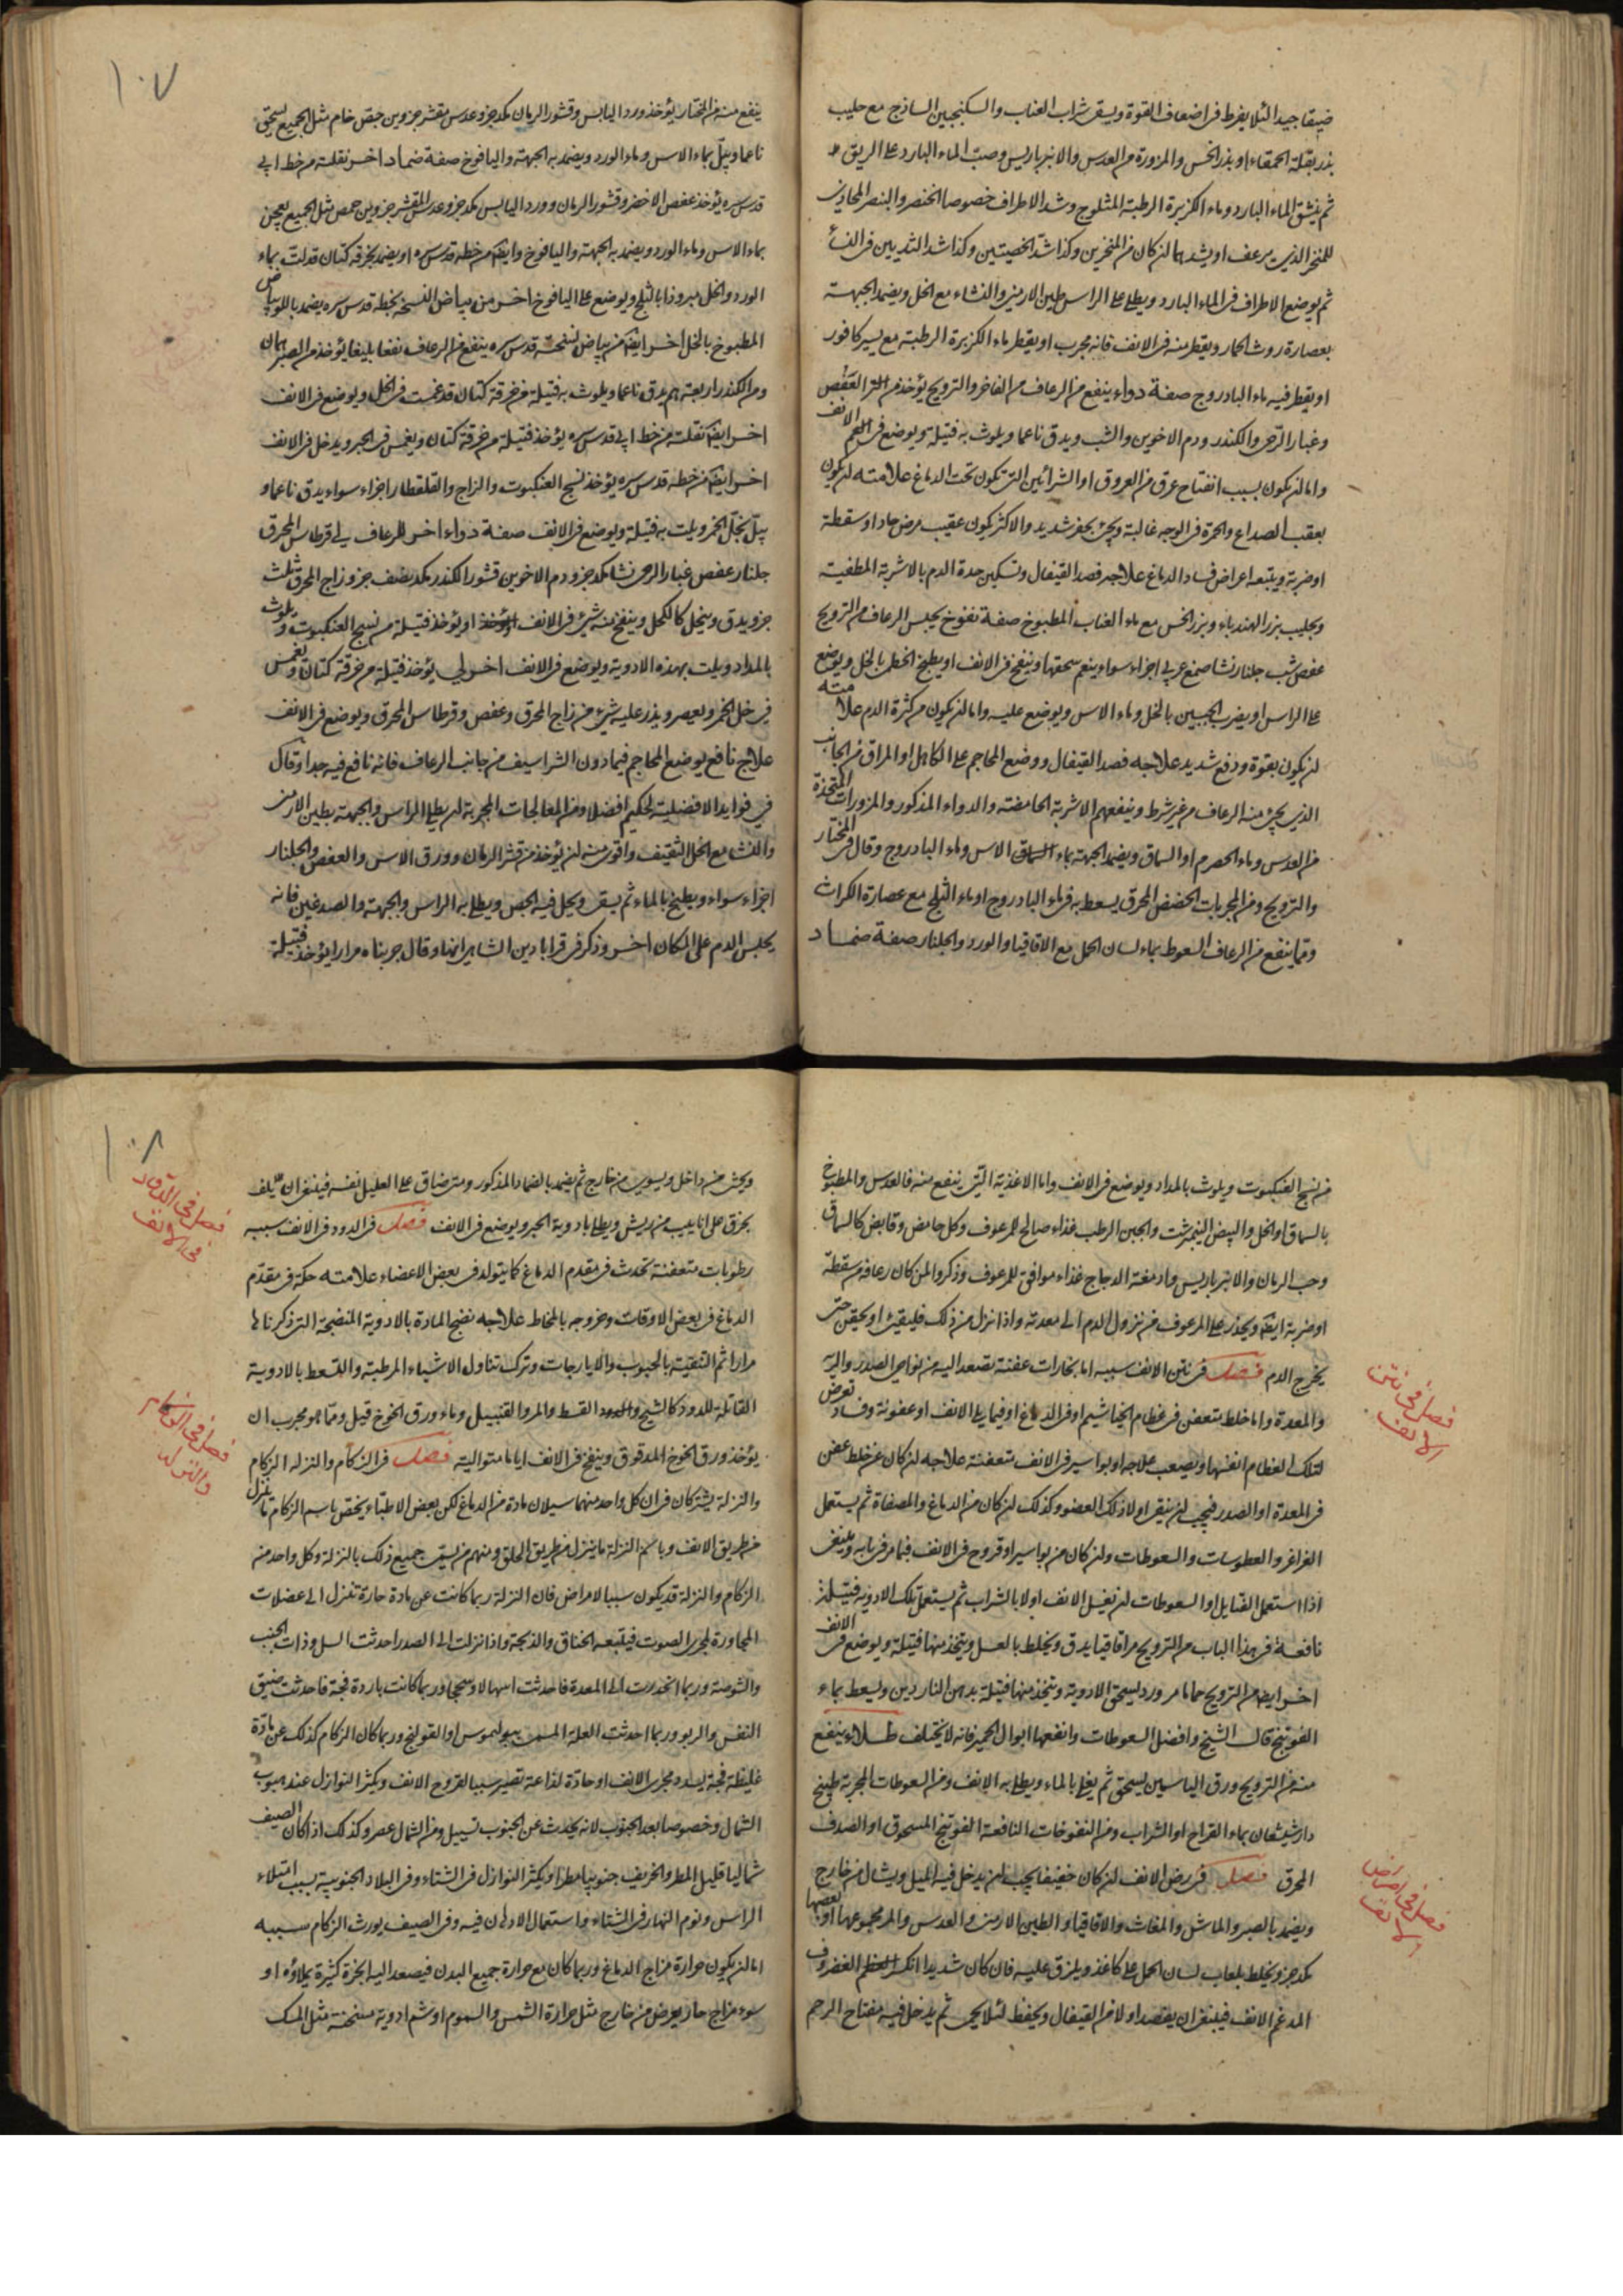 ضيقا جيدا لئلا يفرط فى اضعاف القوة ويسقى شراب العناب والسكنجبين الساذج مع حليب
بذر بقلة الحمقاء او بذر الخس والمزورة من العدس والانبرباريس وصب الماء البارد على الريق
ثم ينشق الماء البارد وماء الكزبرة الرطبة المثلوج وشد الاطراف خصوصا الخنصر والبنصر المحاذى
للمنخر الذى يرعف او يشدهما ان كان من المنخرين وكذا شد الخصيتين وكذا شد الثديين فى النساء
ثم يوضع الاطراف فى الماء البارد ويطلى على الراس طين الارمنى والنشاء مع الخل ويضمد الجبهة
بعصارة روث الحمار ويقطر منه فى الانف فانه مجرب او يقطر ماء الكزبرة الرطبة مع يسير كافور
او يقطر فيه ماء البادروج صفة دواء ينفع من الرعاف من الفاخر والترويح يؤخذ من العفص
وغبار الرحى والكندر ودم الاخوين والشب ويدق ناعما ويلوث به فتيلة ويوضع فى الانف
واما ان يكون بسبب انفتاح عرق من العروق او الشرائين التى تكون تحت الدماغ علامته ان يكون
بعقب الصداع والحمرة فى الوجه غالبة ويجئ بحفز شديد والاكثر يكون عقيب مرض حاد او سقطة
او ضربة ويتبعه اعراض فساد الدماغ علاجه فصد القيفال وتسكين حدة الدم بالاشربة المطفية
وبحليب بزر الهندباء وبزر الخس مع ماء العناب المطبوخ صفة نفوخ يحبس الرعاف من الترويح
عفص شب جلنار نشا صمغ عربى اجزاء سواء ينعم سحقها وينفخ فى الانف او يطبخ الخطمى بالخل ويوضع
على الراس او يضرب الجبين بالخل وماء الاس ويوضع عليه واما ان يكون من كثرة الدم علامته
ان يكون بقوة ودفع شديد علاجه فصد القيفال ووضع المحاجم على الكاهل او المراق من الجانب
الذى يجئ منه الرعاف من غير شرط وينفعهم الاشربة الحامضة والدواء المذكور والمزورات المتخذة
من العدس وماء الحصرم او السماق ويضمد الجبهة بماء الاس وماء البادروج وقال فى المختار
والترويح ومن المجربات الحضض المحرق يسعط به فى ماء البادروج او ماء الثلج مع عصارة الكراث
ومما ينفع من الرعاف السعوط بماء لسان الحمل مع الاقاقيا والورد والجلنار صفة ضماد
١٠٧
ينفع منه من المختار يؤخذ ورد اليابس وقشور الرمان مكد جزو عدس مقشر جزوين جفص خام مثل الجميع يسحق
ناعما ويبل بماء الاس وماء الورد ويضمد به الجبهة واليافوخ صفة ضماد اخر نقلته من خط ابى
قدس سره يؤخذ عفص الاخضر وقشور الرمان وورد اليابس مكد جزو عدس المقشر جزوين حمص مثل الجميع يعجن
بماء الاس وماء الورد ويضمد به الجبهة واليافوخ وايضا من خطه قدس سره او يضمد بخرقة كتان قد لتت بماء
الورد والخل مبروذا بالثلج ويوضع على اليافوخ اخر من بياض النسخة بخطه قدس سره يضمد باللوبيا
المطبوخ بالخل اخر ايضا من بياض نسخته قدس سره ينفع من الرعاف نفعا بليغا يؤخذ من الصبر
ومن الكندر اربعة دراهم يدق ناعما ويلوث به فتيلة من خرقة كتان قد غمست فى الخل ويوضع فى الانف
اخر ايضا نقلته من خط ابى قدس سره يؤخذ فتيلة من خرقة كتان ويغمس فى الحبر ويدخل فى الانف
اخر ايضا من خطه قدس سره يؤخذ نسج العنكبوت والزاج والقلقطار اجزاء سواء يدق ناعما و
يبل بخل الخمر ويلت به فتيلة ويوضع فى الانف صفة دواء اخر للرعاف لى قرطاس المحرق
جلنار عفص غبار الرحى نشا مكد جزو دم الاخوين قشور الكندر مكد نصف جزو زاج المحرق ثلث
جزو يدق وينخل كالكحل وينفخ منه شئ فى الانف او يؤخذ فتيلة من نسج العنكبوت ويلوث
بالمداد ويلت بهذه الادوية ويوضع فى الانف اخر لى يؤخذ فتيلة من خرقة كتان ويغمس
فى خل الخمر ويعصر ويذر عليه شئ من زاج المحرق وعفص وقرطاس المحرق ويوضع فى الانف
علاج نافع يوضع المحاجم فيما دون الشراسيف من جانب الرعاف فانه نافع فيه جدا وقال
فى فوايد الافضلية لحكيم افضلا ومن المعالجات المجربة ان يطلى الراس والجبهة بطين الارمنى
والنشا مع الخل الثقيف واقوى منه ان يؤخذ من قشر الرمان وورق الاس والعفص والجلنار
اجزاء سواء ويطبخ بالماء ثم يسقى ويحل فيه الجص ويطلى به الراس والجبهة والصدغين فانه
يحبس الدم على المكان اخر وذكر فى قرابادين الشاهى انها وقال جربناه مرارا يؤخذ فتيلة
من نسج العنكبوت ويلوث بالمداد ويوضع فى الانف واما الاغذية التى ينفع منه فالعدس والمطبوخ
بالسماق او الخل والبيض النيمبرشت والجبن الرطب غذاء صالح للرعوف وكل حامض وقابض كالسماق
وحب الرمان والانبرباريس وادمغة الدجاج غذاء موافق للمرعوف وذكروا لمن كان رعافه من سقطة
او ضربة ايضا ويحذر على المرعوف من نزول الدم الى معدته واذا نزل من ذلك فليقئ او يحقن حتى
يخرج الدم فصل فى نتن الانف سببه اما بخارات عفنة تصعد اليه من نواحى الصدر والرية
والمعدة واما خلط متعفن فى عظام الخياشيم او فى الدماغ او فيما يلى الانف او عفونة وفساد تعرض
لتلك العظام انفسها ويصعب علاجه او بواسير فى الانف متعفنة علاجه ان كان عن خلط عفن
فى المعدة او الصدر فيجب ان ينقى اولا ذلك العضو وكذلك ان كان من الدماغ والمصفاة ثم يستعمل
الغراغر والعطوسات والسعوطات وان كان من بواسير او قروح فى الانف فبما مر فى بابه وينبغى
اذا استعمل الفتايل او السعوطات ان تغسل الانف اولا بالشراب ثم يستعمل تلك الادوية فتيلة
نافعة فى هذا الباب من الترويح مر اقاقيا يدق ويخلط بالعسل ويتخذ منها فتيلة ويوضع فى الانف
اخر ايضا من الترويح حماما مر ورد يسحق الادوية ويتخذ منها فتيلة بدهن الناردين ويسعط بماء
الفوتنج قال الشيخ وافضل السعوطات وانفعها ابوال الحمير فانه لا يختلف طلاء ينفع
منه من الترويح ورق الياسمين يسحق ثم يغلى بالماء ويطلى به الانف ومن السعوطات المجربة طبيخ
دارشيشعان بماء القراح او الشراب ومن النفوخات النافعة الفوتنج المسحوق او الصدف
المحرق فصل فى رض الانف ان كان خفيفا يجب ان يدخل فيه الميل ويشال من خارج
ويضمد بالصبر والماش والمغاث والاقاقيا والطين الارمنى والعدس والمر مجموعها او بعضها
مكد جزو يخلط بلعاب لسان الحمل على كاغذ ويلزق عليه فان كان شديدا انكسر الغضروف
المدعم الانف فينبغى ان يفصد اولا من القيفال ويحفظ لئلا يحمى ثم يدخل فيه مفتاح الرحم
فصل فى نتن
الانف
فصل فى امراض
الانف
١٠٨
ويحشى من داخل ويسوى من خارج ثم يضمد بالضماد المذكور ومتى ضاق على العليل نفسه فينبغى ان يلف
بخرق على انابيب من ريش ويطلى بادوية الحبر ويوضع فى الانف فصل فى الدود فى الانف سببه
رطوبات متعفنة تحدث فى مقدم الدماغ كما يتولد فى بعض الاعضاء علامته حكة فى مقدم
الدماغ فى بعض الاوقات وخروجه بالمخاط علاجه نضج المادة بالادوية المنضجة التى ذكرناها
مرارا ثم التنقية بالحبوب والايارجات وترك تناول الاشياء المرطبة والتسعط بالادوية
القاتلة للدود كالشيح والقسط والمر والقنبيل وماء ورق الخوخ قيل ومما هو مجرب ان
يؤخذ ورق الخوخ المدقوق وينفخ فى الانف اياما متوالية فصل فى الزكام والنزلة الزكام
والنزلة يشتركان فى ان كل واحد منهما سيلان مادة من الدماغ لكن بعض الاطباء يخص باسم الزكام ما ينزل
من طريق الانف وباسم النزلة ما ينزل من طريق الحلق ومنهم من يسمى جميع ذلك بالنزلة وكل واحد من
الزكام والنزلة قد يكون سببا لامراض فان النزلة ربما كانت عن مادة حارة تنزل الى عضلات
المجاورة لمجرى الصوت فيتبعه الخناق والذبحة واذا نزلت الى الصدر احدثت السل وذات الجنب
والشوصة وربما انحدرت الى المعدة فاحدثت اسهالا وسحجا وربما كانت باردة فجة فاحدثت ضيق
النفس والربو وربما احدثت العلة المسمى ببوليموس او القولنج وربما كان الزكام كذلك عن مادة
غليظة فجة يسد مجرى الانف او حادة لذاعة تصير سببا لقروح الانف ويكثر النوازل عند هبوب
الشمال وخصوصا بعد الجنوب لانه يحدث عن الجنوب تسييل ومن الشمال عصر وكذلك اذا كان الصيف
شماليا قليل المطر والخريف جنوبيا مطرا ويكثر النوازل فى الشتاء وفى البلاد الجنوبية بسبب امتلاء
الراس ونوم النهار فى الشتاء واستعمال الادهان فيه وفى الصيف يورث الزكام سببه
اما ان يكون حرارة مزاج الدماغ وربما كان مع حرارة جميع البدن فيصعد اليه ابخرة كثيرة يملاؤه او
سوء مزاج حار يعرض من خارج مثل حرارة الشمس والسموم او شم ادوية مسخنة مثل المسك
فصل فى الدود
فى الانف
فصل فى الزكام
والنزلة